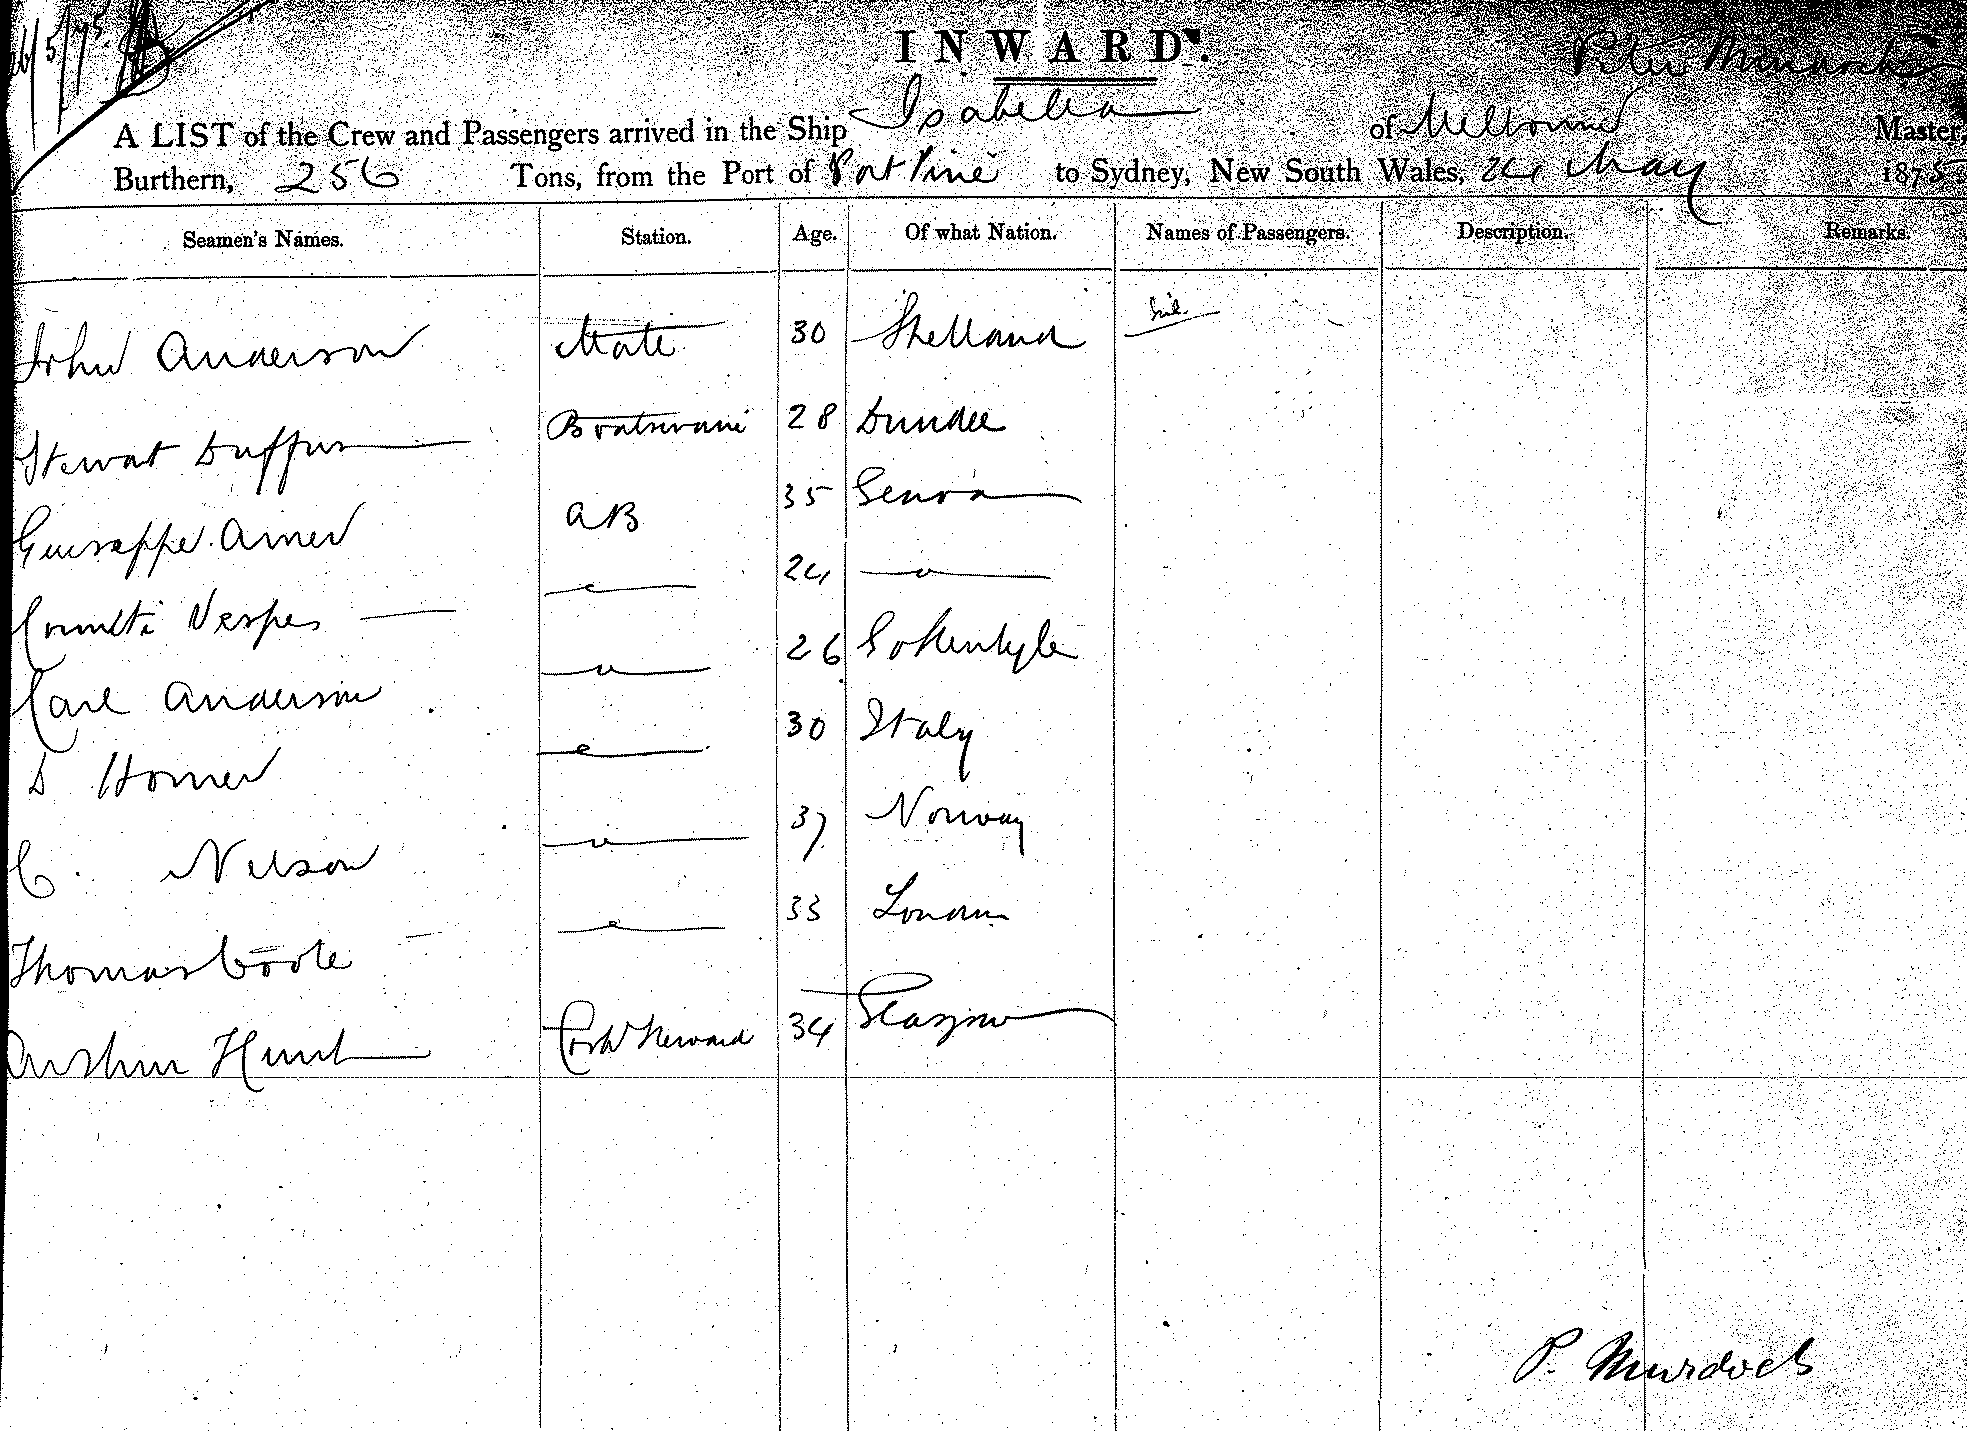 26/5/75
INWARD.
Peter Murdoch
A LIST of the Crew and Passengers arrived in the Ship Isabella of Melbourne Master,
Burthern, 256 Tons, from the Port of Port Pirie to Sydney, New South Wales, 24 May 1875
Seamen's Names. Station. Age. Of what Nation. Names of Passengers. Description. Remarks.
John Anderson Mate 30 Shetland Nil.
Stewart Duffus Boatswain 28 Dundee
Guiseppe AB 35 Genoa
Vespes 24
Carl Anderson 26 
D Homer 30 Italy
C. Nelson 37 Norway
Thomas Coote 33 London
Arthur Hunt Cook Steward 34 Glasgow
P. Murdoch